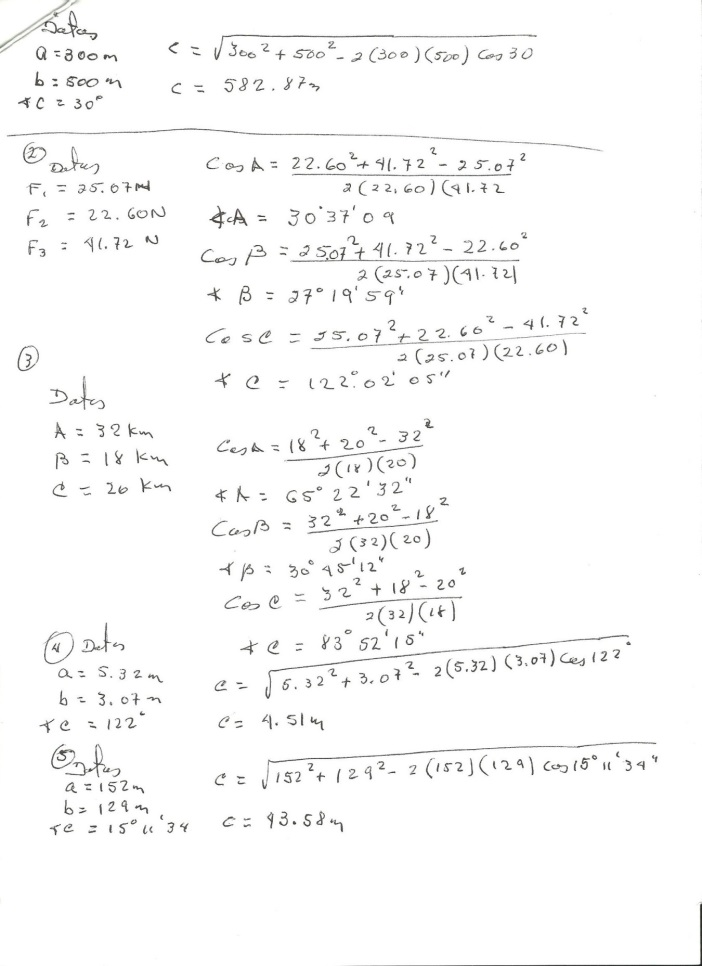 Datos
a = 300 m
b = 500 m
∢C = 30°
c = √300² + 500² - 2(300)(500) Cos 30
c = 582.87m
② Datos
F₁ = 25.07N
F₂ = 22.60N
F₃ = 41.72 N
Cos A = 22.60² + 41.72² - 25.07² / 2(22.60)(41.72
∢A = 30°37'09
Cos β = 25.07² + 41.72² - 22.60² / 2(25.07)(41.72)
∢ β = 27° 19' 59"
Cos C = 25.07² + 22.60² - 41.72² / 2(25.07)(22.60)
∢ C = 122° 02' 05"
③
Datos
A = 32 km
β = 18 km
C = 20 km
Cos A = 18² + 20² - 32² / 2(18)(20)
∢A = 65° 22' 32"
Cos β = 32² + 20² - 18² / 2(32)(20)
∢β = 30° 45' 12"
Cos C = 32² + 18² - 20² / 2(32)(18)
∢ C = 83° 52' 15"
④ Datos
a = 5.32m
b = 3.07m
∢C = 122°
c = √5.32² + 3.07² - 2(5.32)(3.07) Cos 122°
c = 4.51m
⑤ Datos
a = 152m
b = 129m
∢C = 15° 11' 34
c = √152² + 129² - 2(152)(129) cos 15° 11' 34"
c = 43.58m